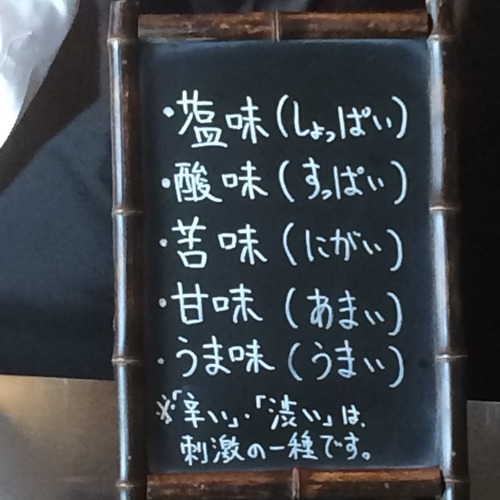 ・塩味(しょっぱい)
・酸味(すっぱい)
・苦味(にがい)
・甘味(あまい)
・うま味(うまい)
※「辛い」・「渋い」は、
刺激の一種です。